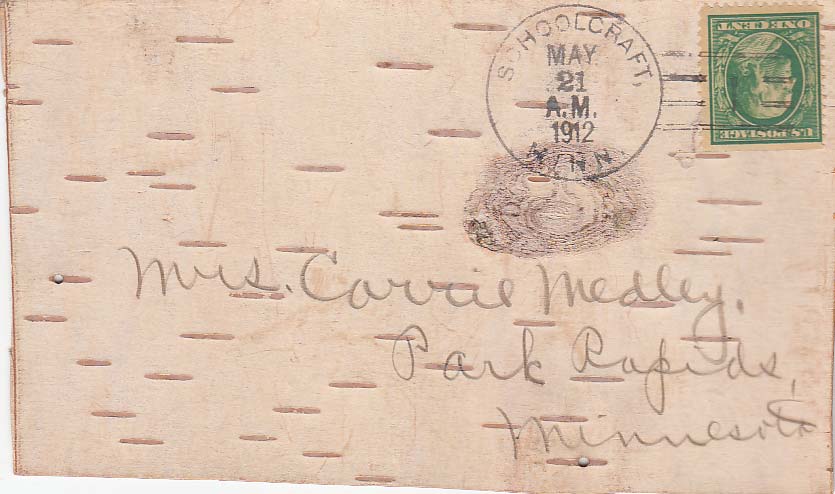 SCHOOLCRAFT,
MAY
21
A.M.
1912
MINN
ONE CENT
U.S. POSTAGE
Mrs. Carrie Medley,
Park Rapids,
Minnesota